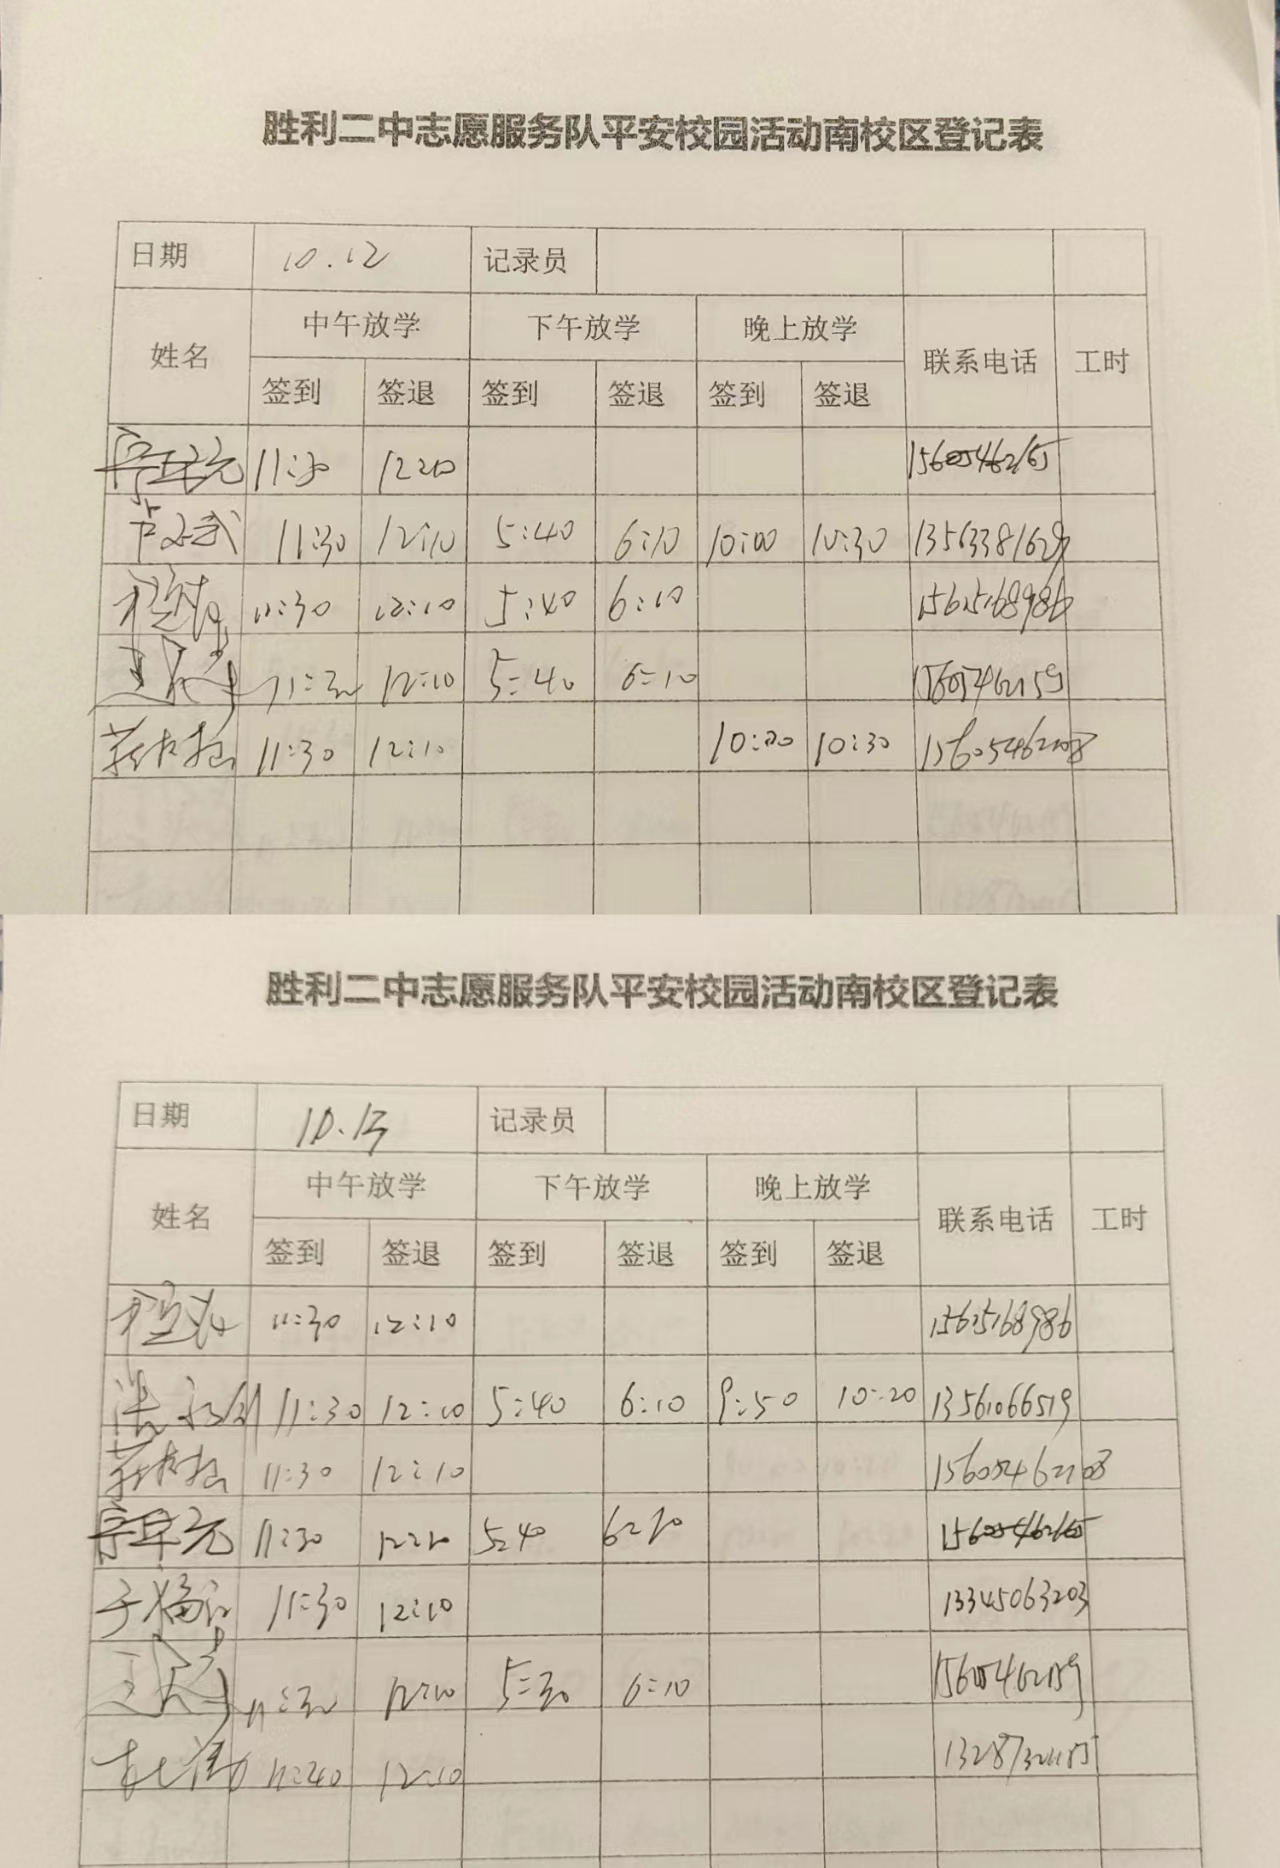 胜利二中志愿服务队平安校园活动南校区登记表
日期 10.12 记录员
姓名 中午放学 下午放学 晚上放学 联系电话 工时
签到 签退 签到 签退 签到 签退
11:30 12:20 15605462165
11:30 12:10 5:40 6:10 10:00 10:30
11:30 12:10 5:40 6:10 15625168986
11:30 12:10 5:40 6:10 15605462159
11:30 12:10 10:00 10:30 15605462108
胜利二中志愿服务队平安校园活动南校区登记表
日期 10.13 记录员
姓名 中午放学 下午放学 晚上放学 联系电话 工时
签到 签退 签到 签退 签到 签退
11:30 12:10 15625168986
11:30 12:10 5:40 6:10 9:50 10:20 13561066519
11:30 12:10 15605462108
11:30 12:20 5:40 6:20 15605462165
于福江 11:30 12:10 13345063203
11:30 12:10 5:30 6:10 15605462159
11:40 12:10